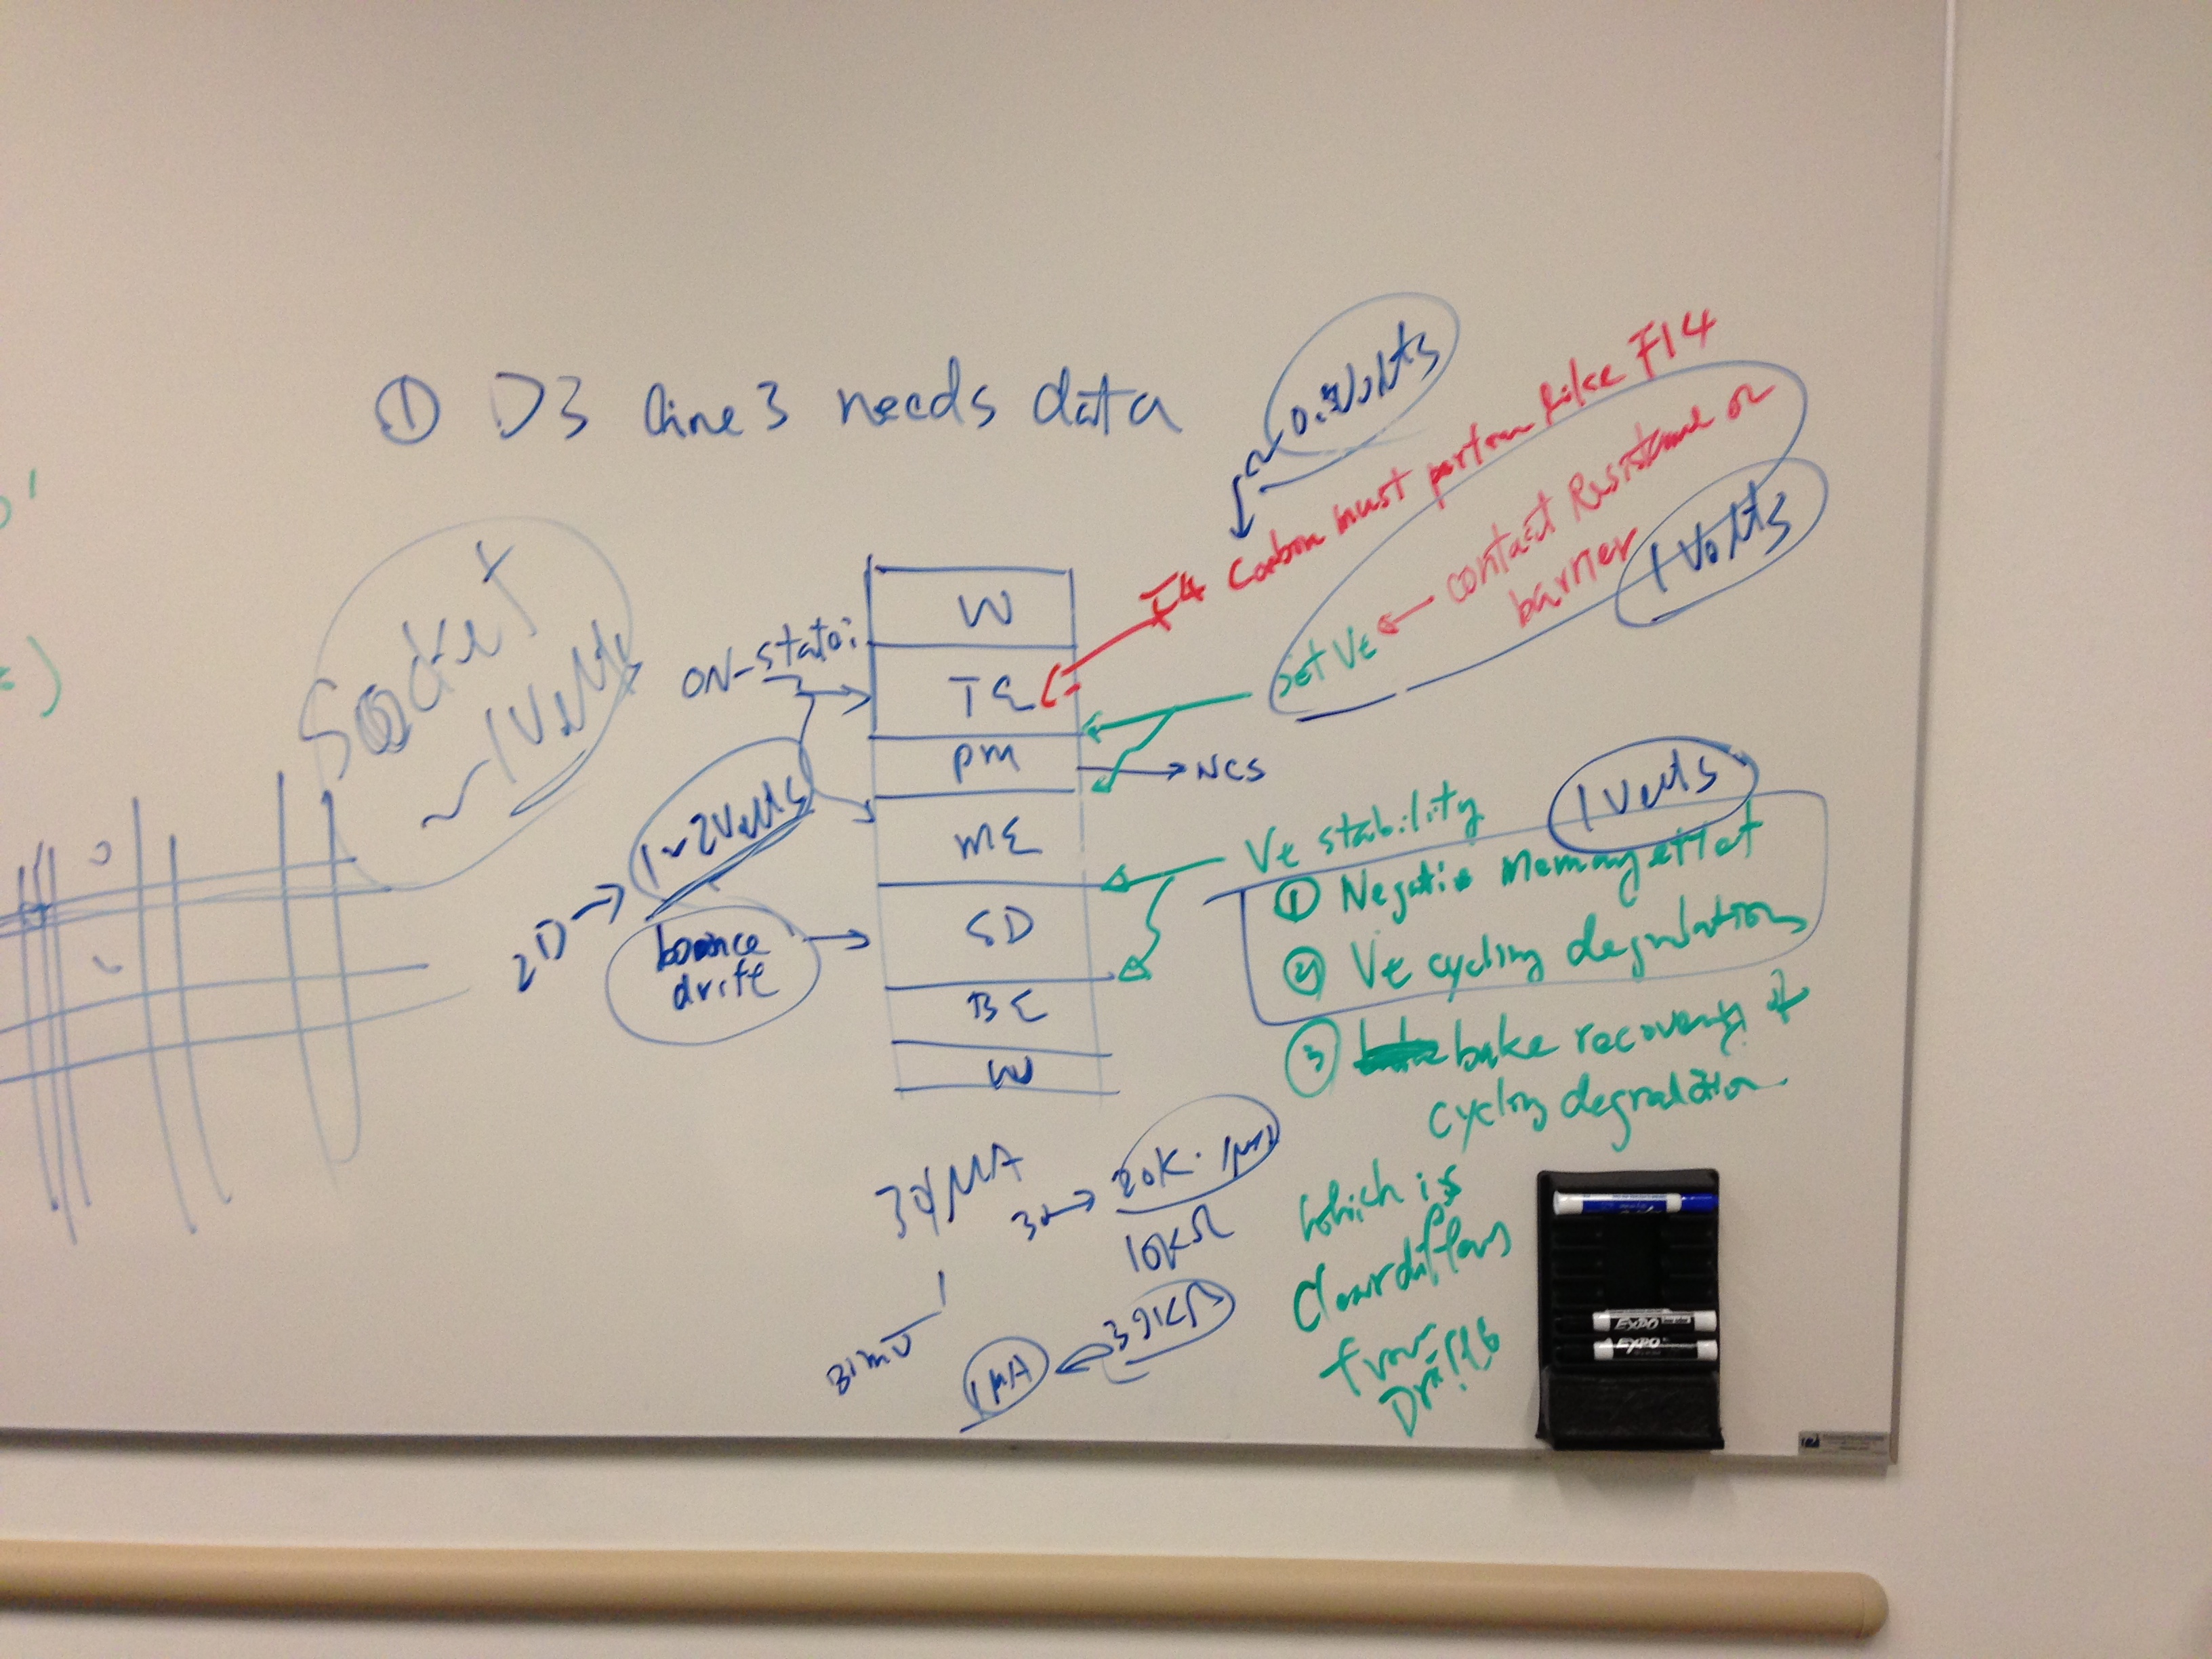 ① D3 line 3 needs data
0.3Volts
F14 Carbon must perform like F14
contact Resistance or
barrier
1 Volts
set Vt
Socket
~1Volts
ON-state:
W
TE
PM
NCS
ME
SD
BE
W
1~2Volts
2D
bounce
drift
Vt stability
1 Volts
① Negative Memory effect
② Vt cycling degradation
③ bake recovery of
cycling degradation
which is
from
Drift
30μA
20K·
10KΩ
1μA